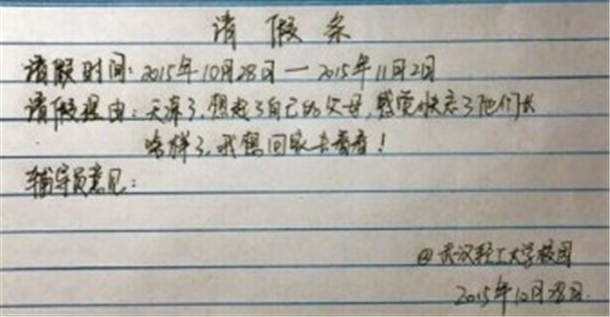 请假条
请假时间：2015年10月28日—2015年11月2日
请假理由：天凉了，想起了自己的父母，感觉快忘了他们长
啥样了，我想回家去看看！
辅导员意见：
@武汉轻工大学校园
2015年10月28日